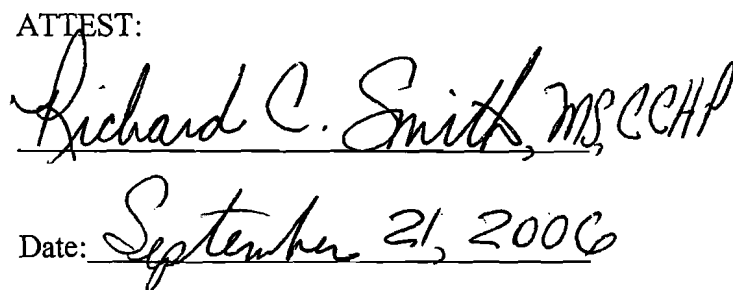 ATTEST:
Richard C. Smith, MS, CCHP
Date: September 21, 2006